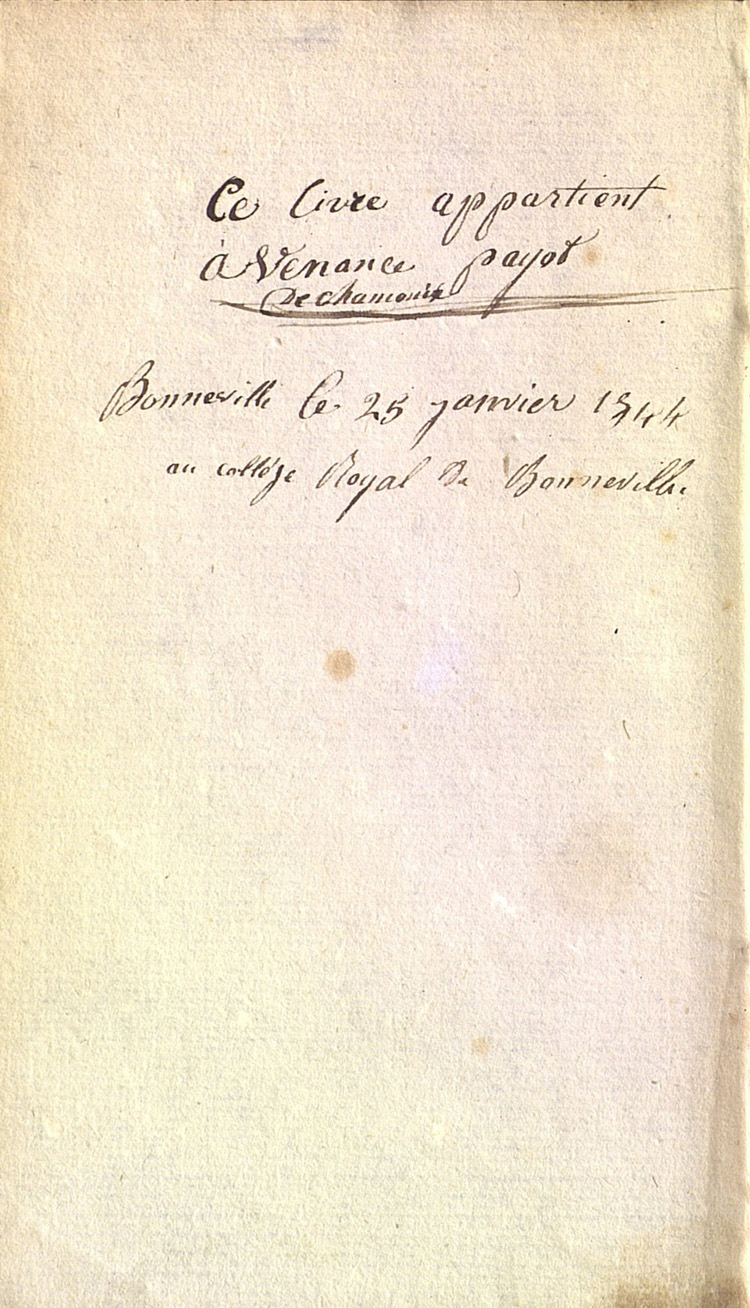 Ce livre appartient
à Venance payot
De chamonix
Bonneville le 25 janvier 1844
au collége Royal de Bonneville.